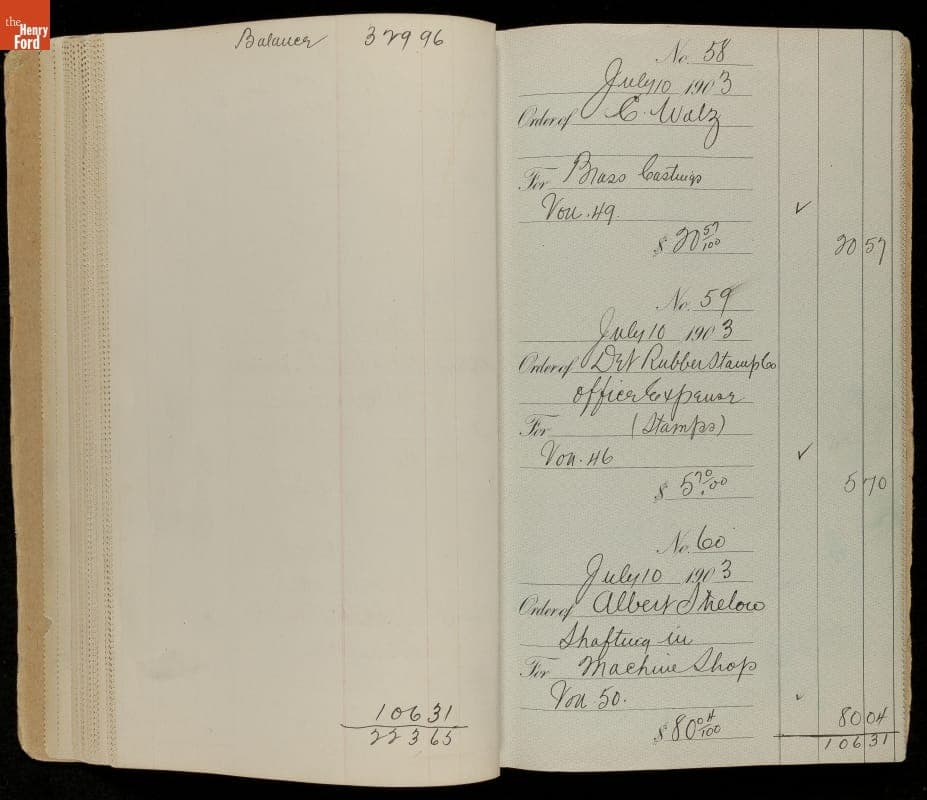 the
Henry
Ford
Balance 329 96
106 31
223 65
No. 58
July 10 1903
Order of C. Walz
For Brass Castings
Vou. 49.
$ 20 57/100 20 57
No. 59
July 10 1903
Order of Det Rubber Stamp Co
Office Expense
For (Stamps)
Vou. 46
$ 5 70/00 5 70
No. 60
July 10 1903
Order of Albert Strelow
Shafting in
For Machine Shop
Vou 50.
$ 80 04/100 80 04
106 31